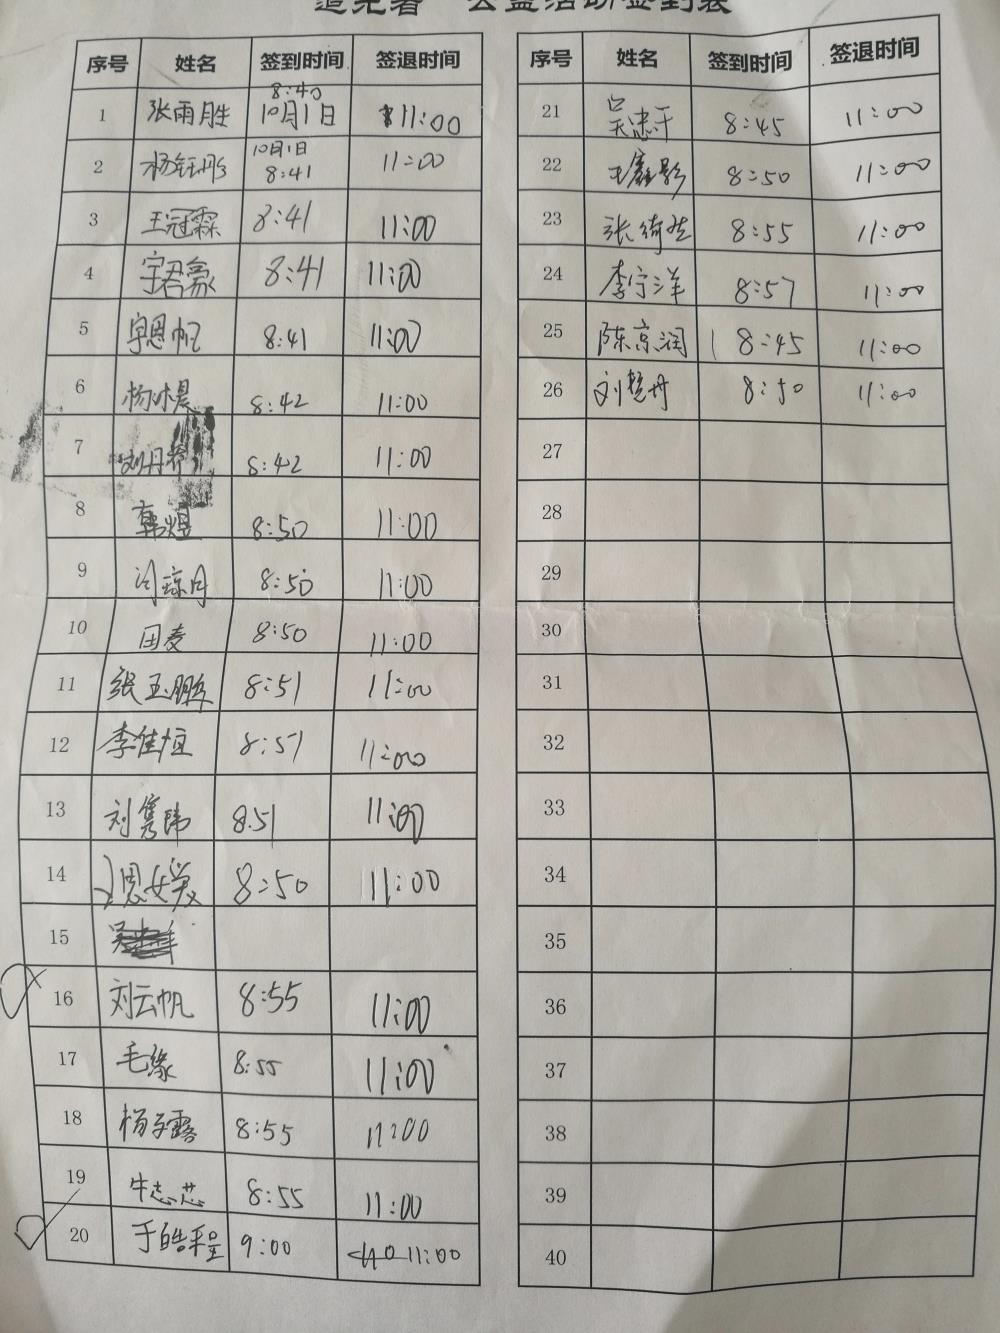 追光者 公益活动签到表
序号 姓名 签到时间 签退时间
1 张雨胜 8:40 10月1日 11:00
2 杨钰彤 10月1日 8:41 11:00
3 王冠霖 8:41 11:00
4 宇君豪 8:41 11:00
5 宇恩帆 8:41 11:00
6 杨沐晨 8:42 11:00
7 刘丹 8:42 11:00
8 韩煜 8:50 11:00
9 闫琼月 8:50 11:00
10 田麦 8:50 11:00
11 张玉鹏 8:51 11:00
12 李佳恒 8:51 11:00
13 刘隽玮 8.51 11:00
14 8:50 11:00
15
16 刘云帆 8:55 11:00
17 毛缘 8:55 11:00
18 杨子露 8:55 11:00
19 牛志芯 8:55 11:00
20 于皓程 9:00 11:00
序号 姓名 签到时间 签退时间
21 吴忠干 8:45 11:00
22 王鑫影 8:50 11:00
23 张绮 8:55 11:00
24 李宁洋 8:57 11:00
25 陈京润 8:45 11:00
26 刘慧丹 8:50 11:00
27
28
29
30
31
32
33
34
35
36
37
38
39
40